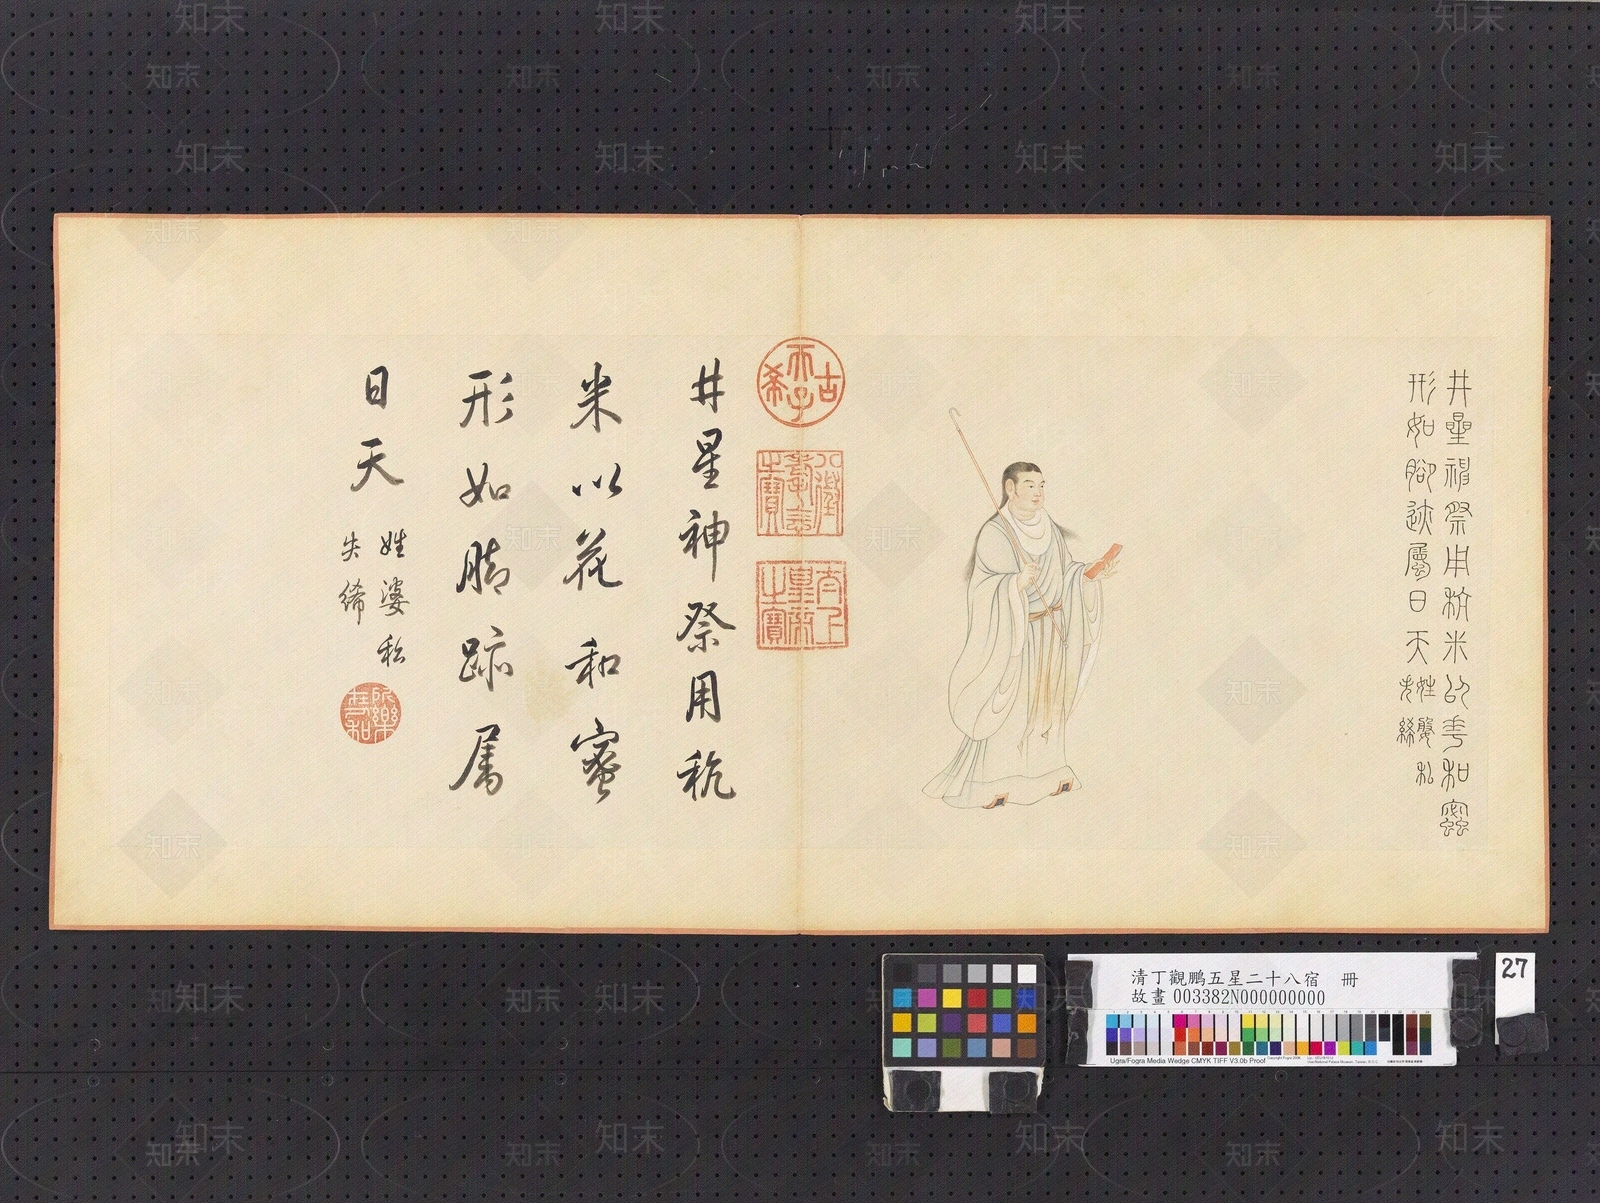 井星神祭用秔米以花和蜜
形如腳跡屬日天
姓婆私
失絺
古希天子
八徵耄念之寶
太上皇帝之寶
井星神祭用秔
米以花和蜜
形如腳跡屬
日天
姓婆私
失絺
所樂在人和
清丁觀鵬五星二十八宿 冊
故畫 003382N000000000
27
Ugra/Fogra Media Wedge CMYK TIFF V3.0b Proof
知末